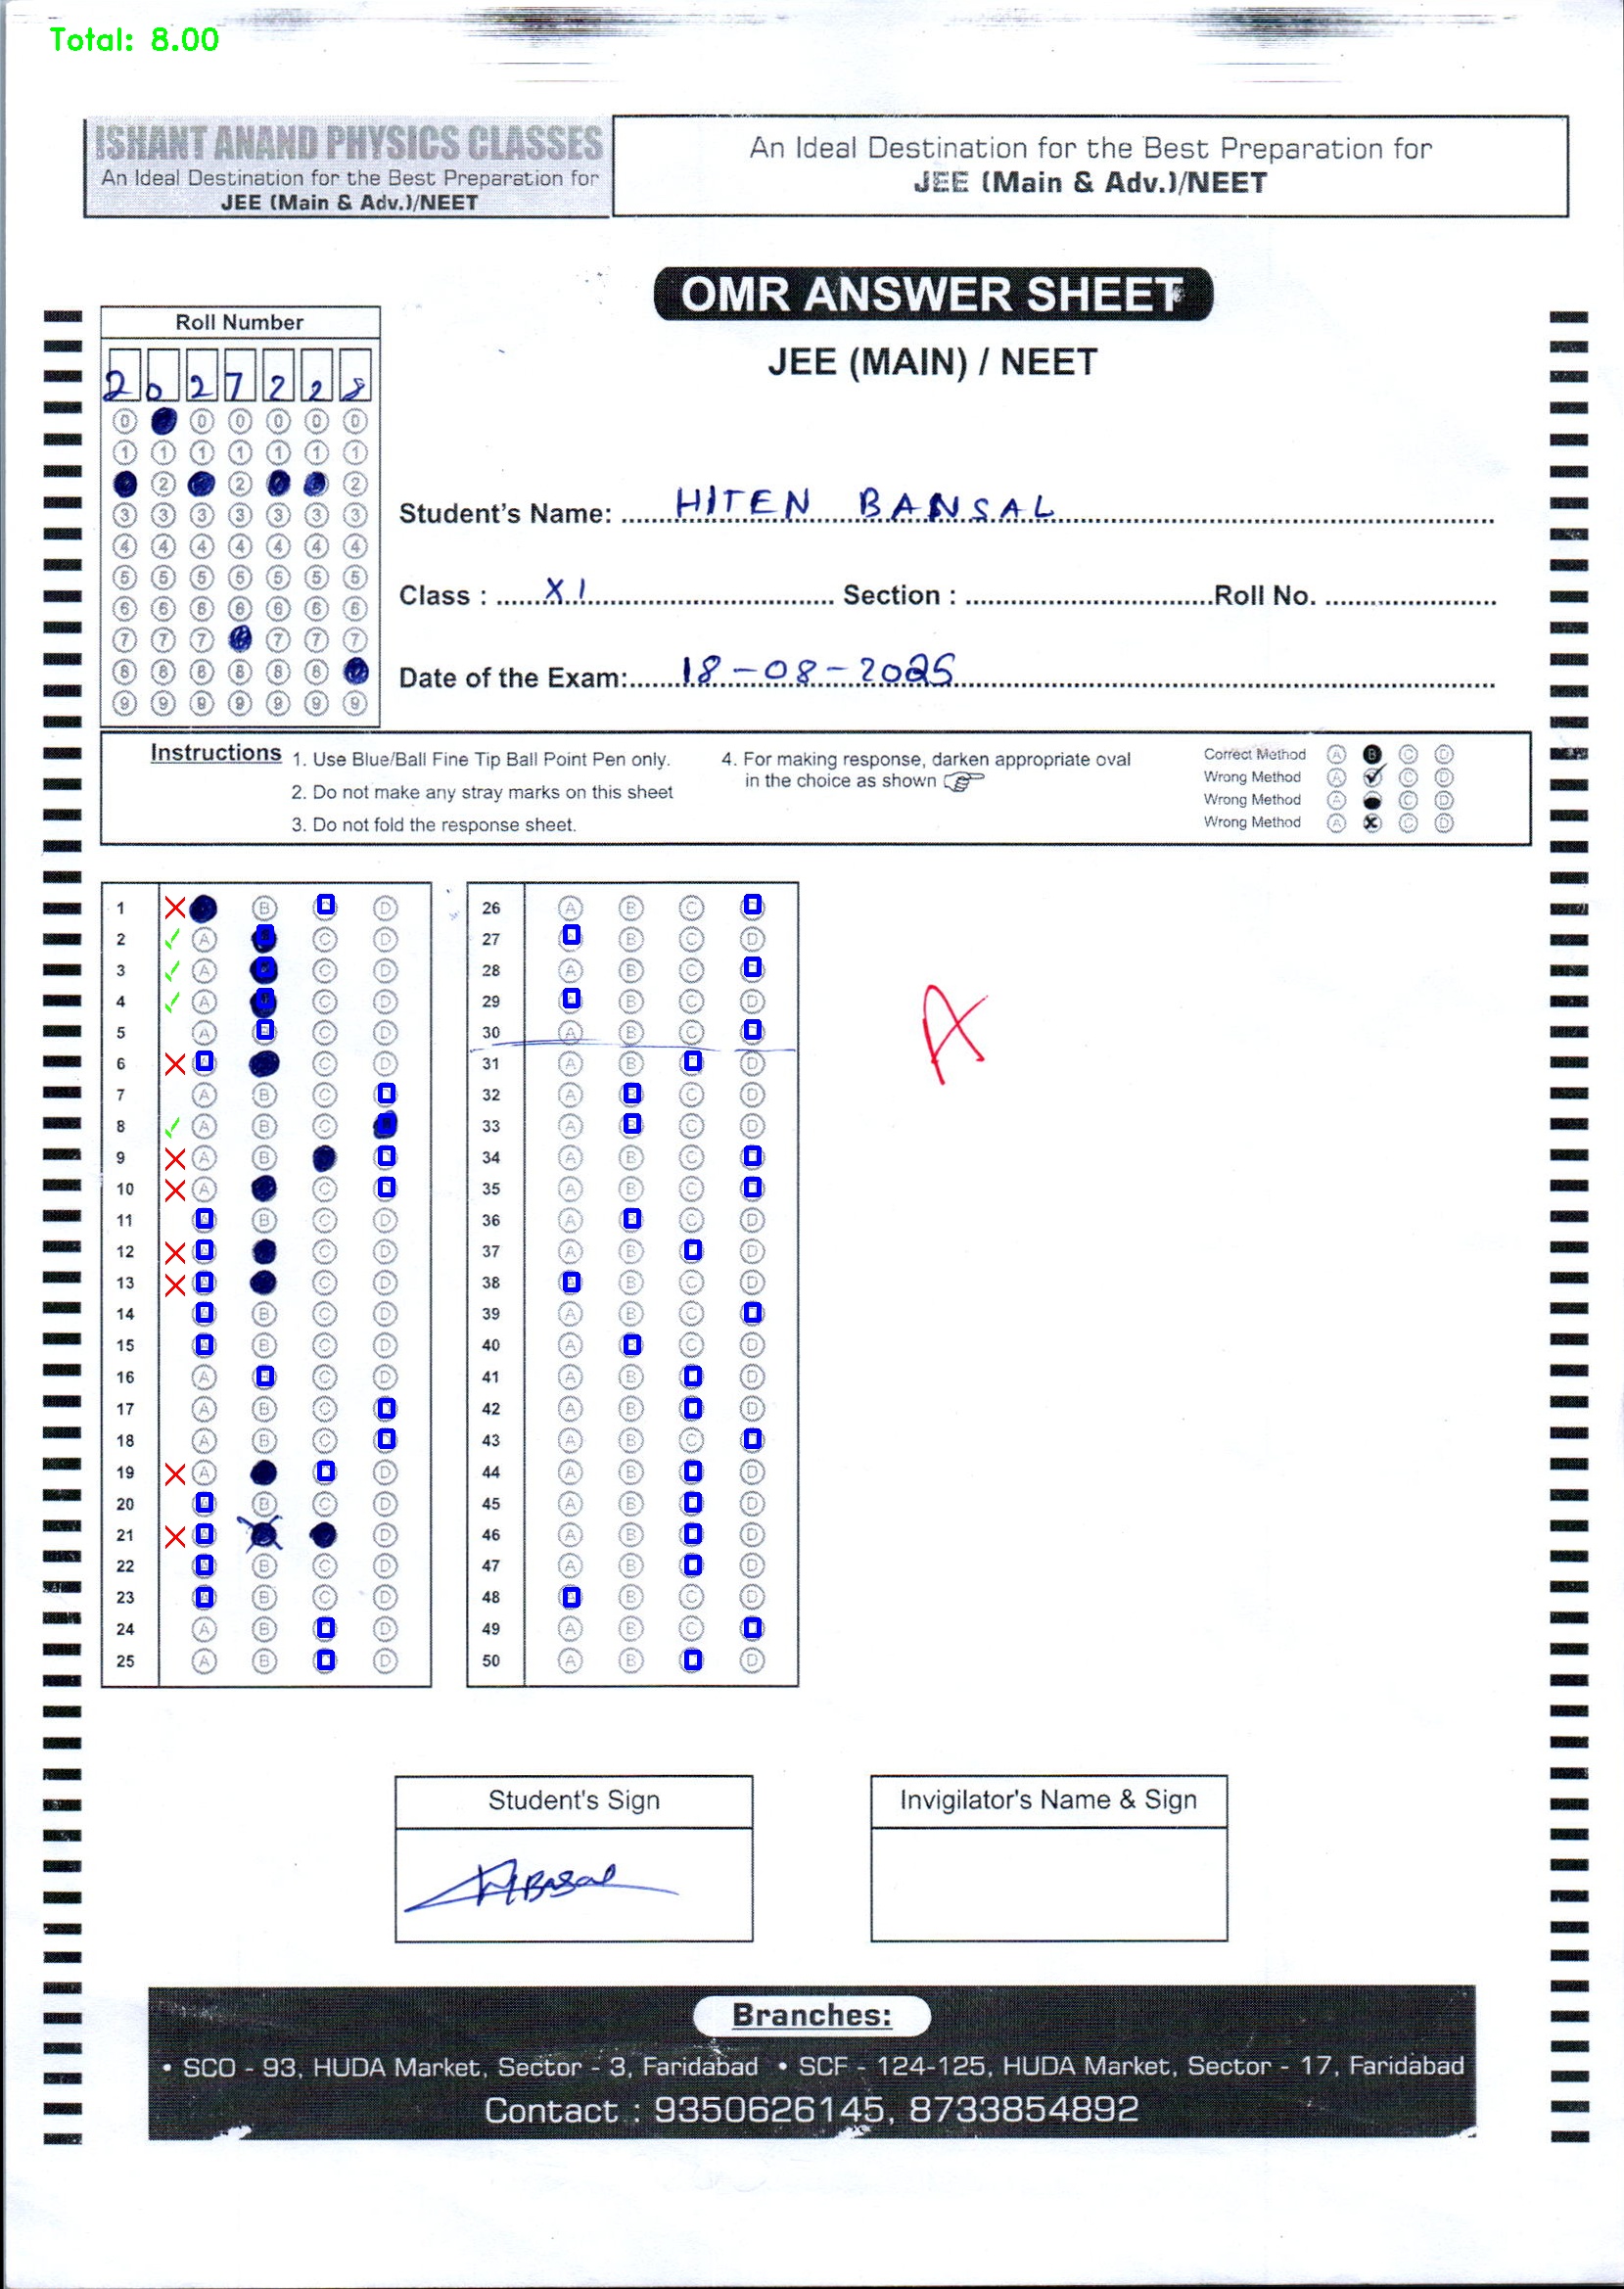 Total: 8.00
ISHANT ANAND PHYSICS CLASSES
An Ideal Destination for the Best Preparation for
JEE (Main & Adv.)/NEET
An Ideal Destination for the Best Preparation for
JEE (Main & Adv.)/NEET
OMR ANSWER SHEET
JEE (MAIN) / NEET
Roll Number
2 0 2 7 2 2 8
0 0 0 0 0 0
1 1 1 1 1 1 1
2 2 2
3 3 3 3 3 3 3
4 4 4 4 4 4 4
5 5 5 5 5 5 5
6 6 6 6 6 6 6
7 7 7 7 7 7
8 8 8 8 8 8
9 9 9 9 9 9 9
Student's Name: HITEN BANSAL
Class : XI Section : Roll No.
Date of the Exam: 18-08-2025
Instructions
1. Use Blue/Ball Fine Tip Ball Point Pen only.
2. Do not make any stray marks on this sheet
3. Do not fold the response sheet.
4. For making response, darken appropriate oval
in the choice as shown
Correct Method A B C D
Wrong Method A C D
Wrong Method A C D
Wrong Method A C D
1 B D
2 A C D
3 A C D
4 A C D
5 A C D
6 C D
7 A B C
8 A B C
9 A B
10 A C
11 B C D
12 C D
13 C D
14 B C D
15 B C D
16 A C D
17 A B C
18 A B C
19 A D
20 B C D
21 D
22 B C D
23 B C D
24 A B D
25 A B D
26 A B C
27 B C D
28 A B C
29 B C D
30 A B C
31 A B D
32 A C D
33 A C D
34 A B C
35 A B C
36 A C D
37 A B D
38 B C D
39 A B C
40 A C D
41 A B D
42 A B D
43 A B C
44 A B D
45 A B D
46 A B D
47 A B D
48 B C D
49 A B C
50 A B D
A
Student's Sign
Invigilator's Name & Sign
Branches:
• SCO - 93, HUDA Market, Sector - 3, Faridabad • SCF - 124-125, HUDA Market, Sector - 17, Faridabad
Contact : 9350626145, 8733854892